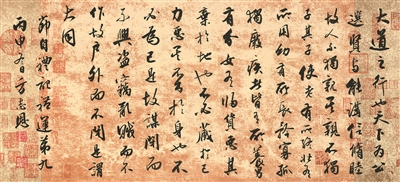 大道之行也天下為公
選賢與能講信脩睦
故人不獨親其親不獨
子其子使老有所終壯有
所用幼有所長矜寡孤
獨廢疾者皆有所養男
有分女有歸貨惡其
棄於地也不必藏於己
力惡其不出於身也不
必為己是故謀閉而
不興盜竊亂賊而不
作故戶外而不閉是謂
大同
節自禮記禮運第九
丙申日方志恩